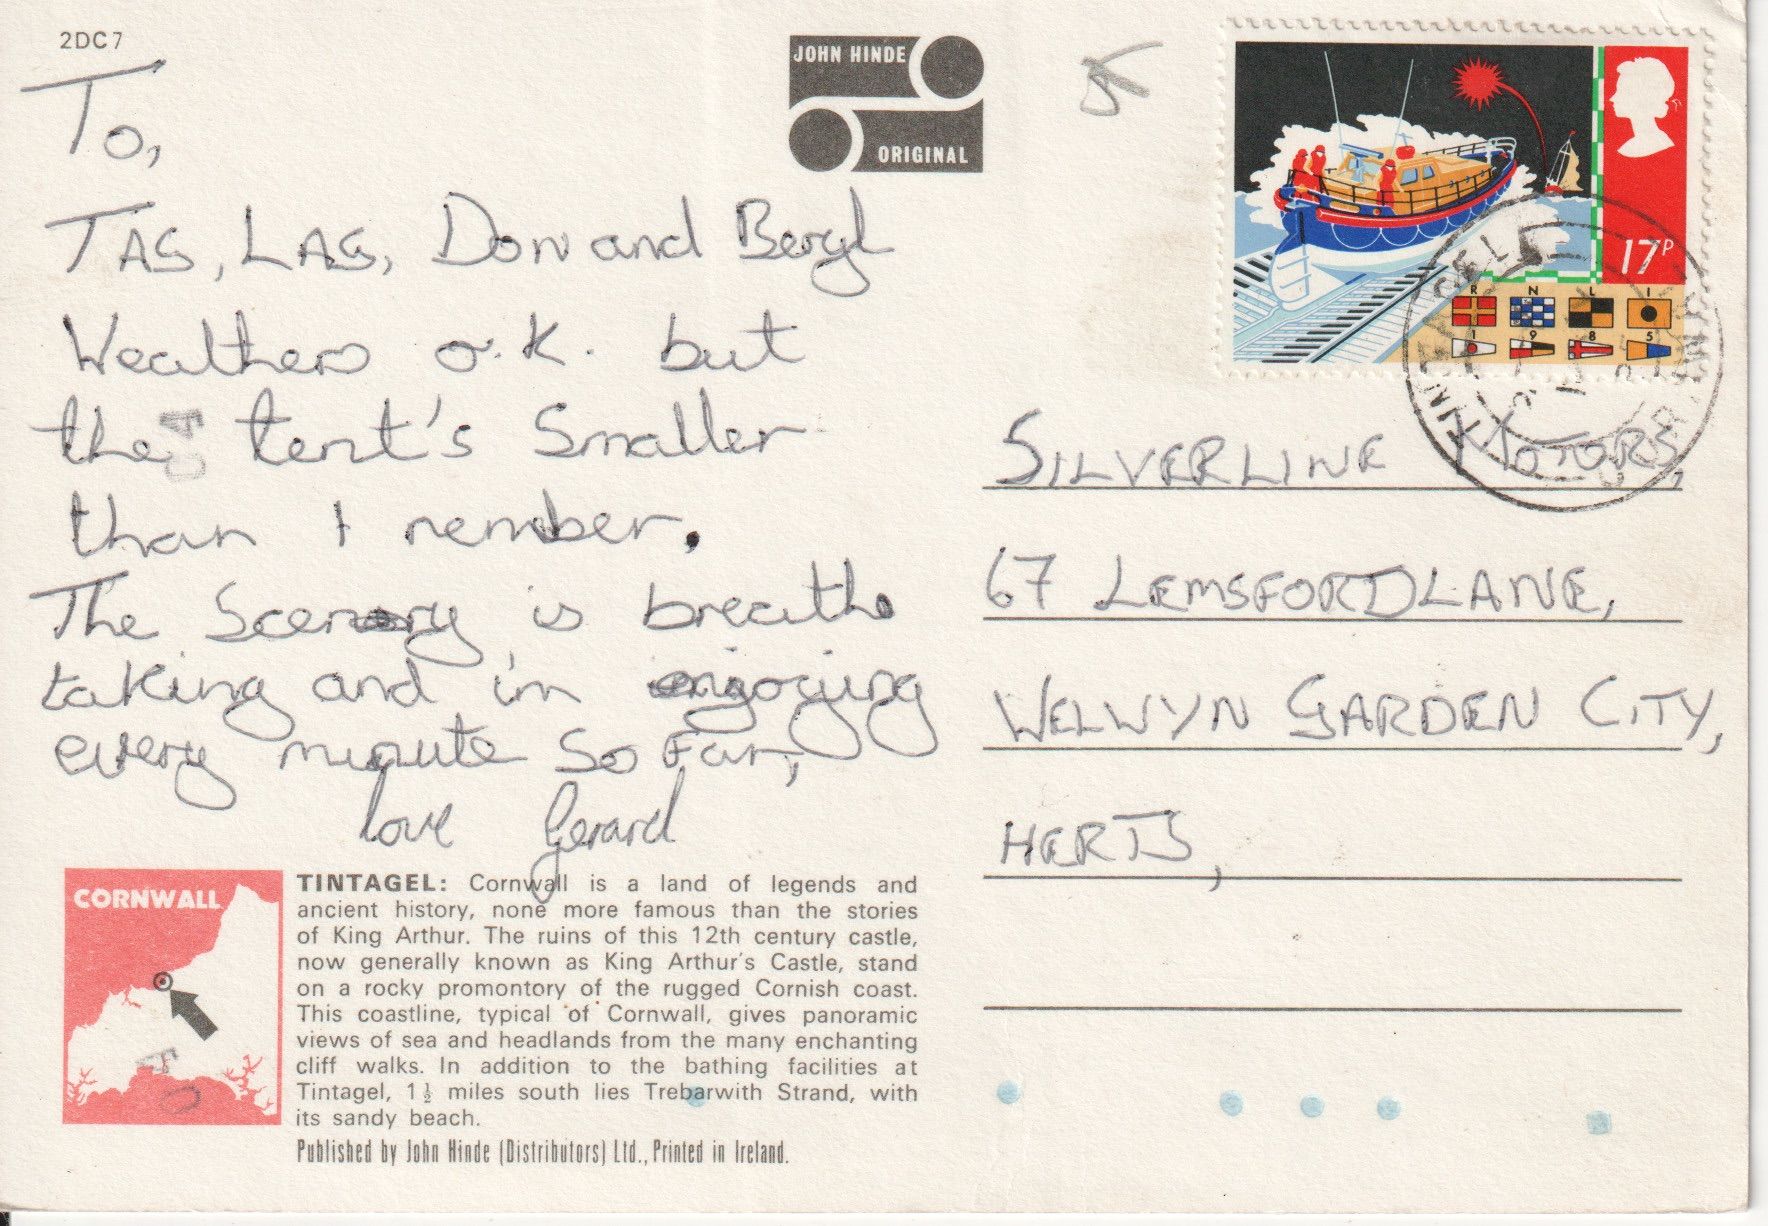 2DC7
To,
TAS, LAS, Don and Beryl
Weathers o.k. but
the tent's Smaller
than I rember.
The Scenery is breath
taking and i'm enjoying
every minute So Far,
love Gerard
JOHN HINDE
ORIGINAL
17P
R N L I
1 9 8 5
TINTAGEL
CORNWALL
SILVERLINE MOTORS,
67 LEMSFORD LANE,
WELWYN GARDEN CITY,
HERTS,
CORNWALL
TINTAGEL: Cornwall is a land of legends and
ancient history, none more famous than the stories
of King Arthur. The ruins of this 12th century castle,
now generally known as King Arthur's Castle, stand
on a rocky promontory of the rugged Cornish coast.
This coastline, typical of Cornwall, gives panoramic
views of sea and headlands from the many enchanting
cliff walks. In addition to the bathing facilities at
Tintagel, 1½ miles south lies Trebarwith Strand, with
its sandy beach.
Published by John Hinde (Distributors) Ltd., Printed in Ireland.